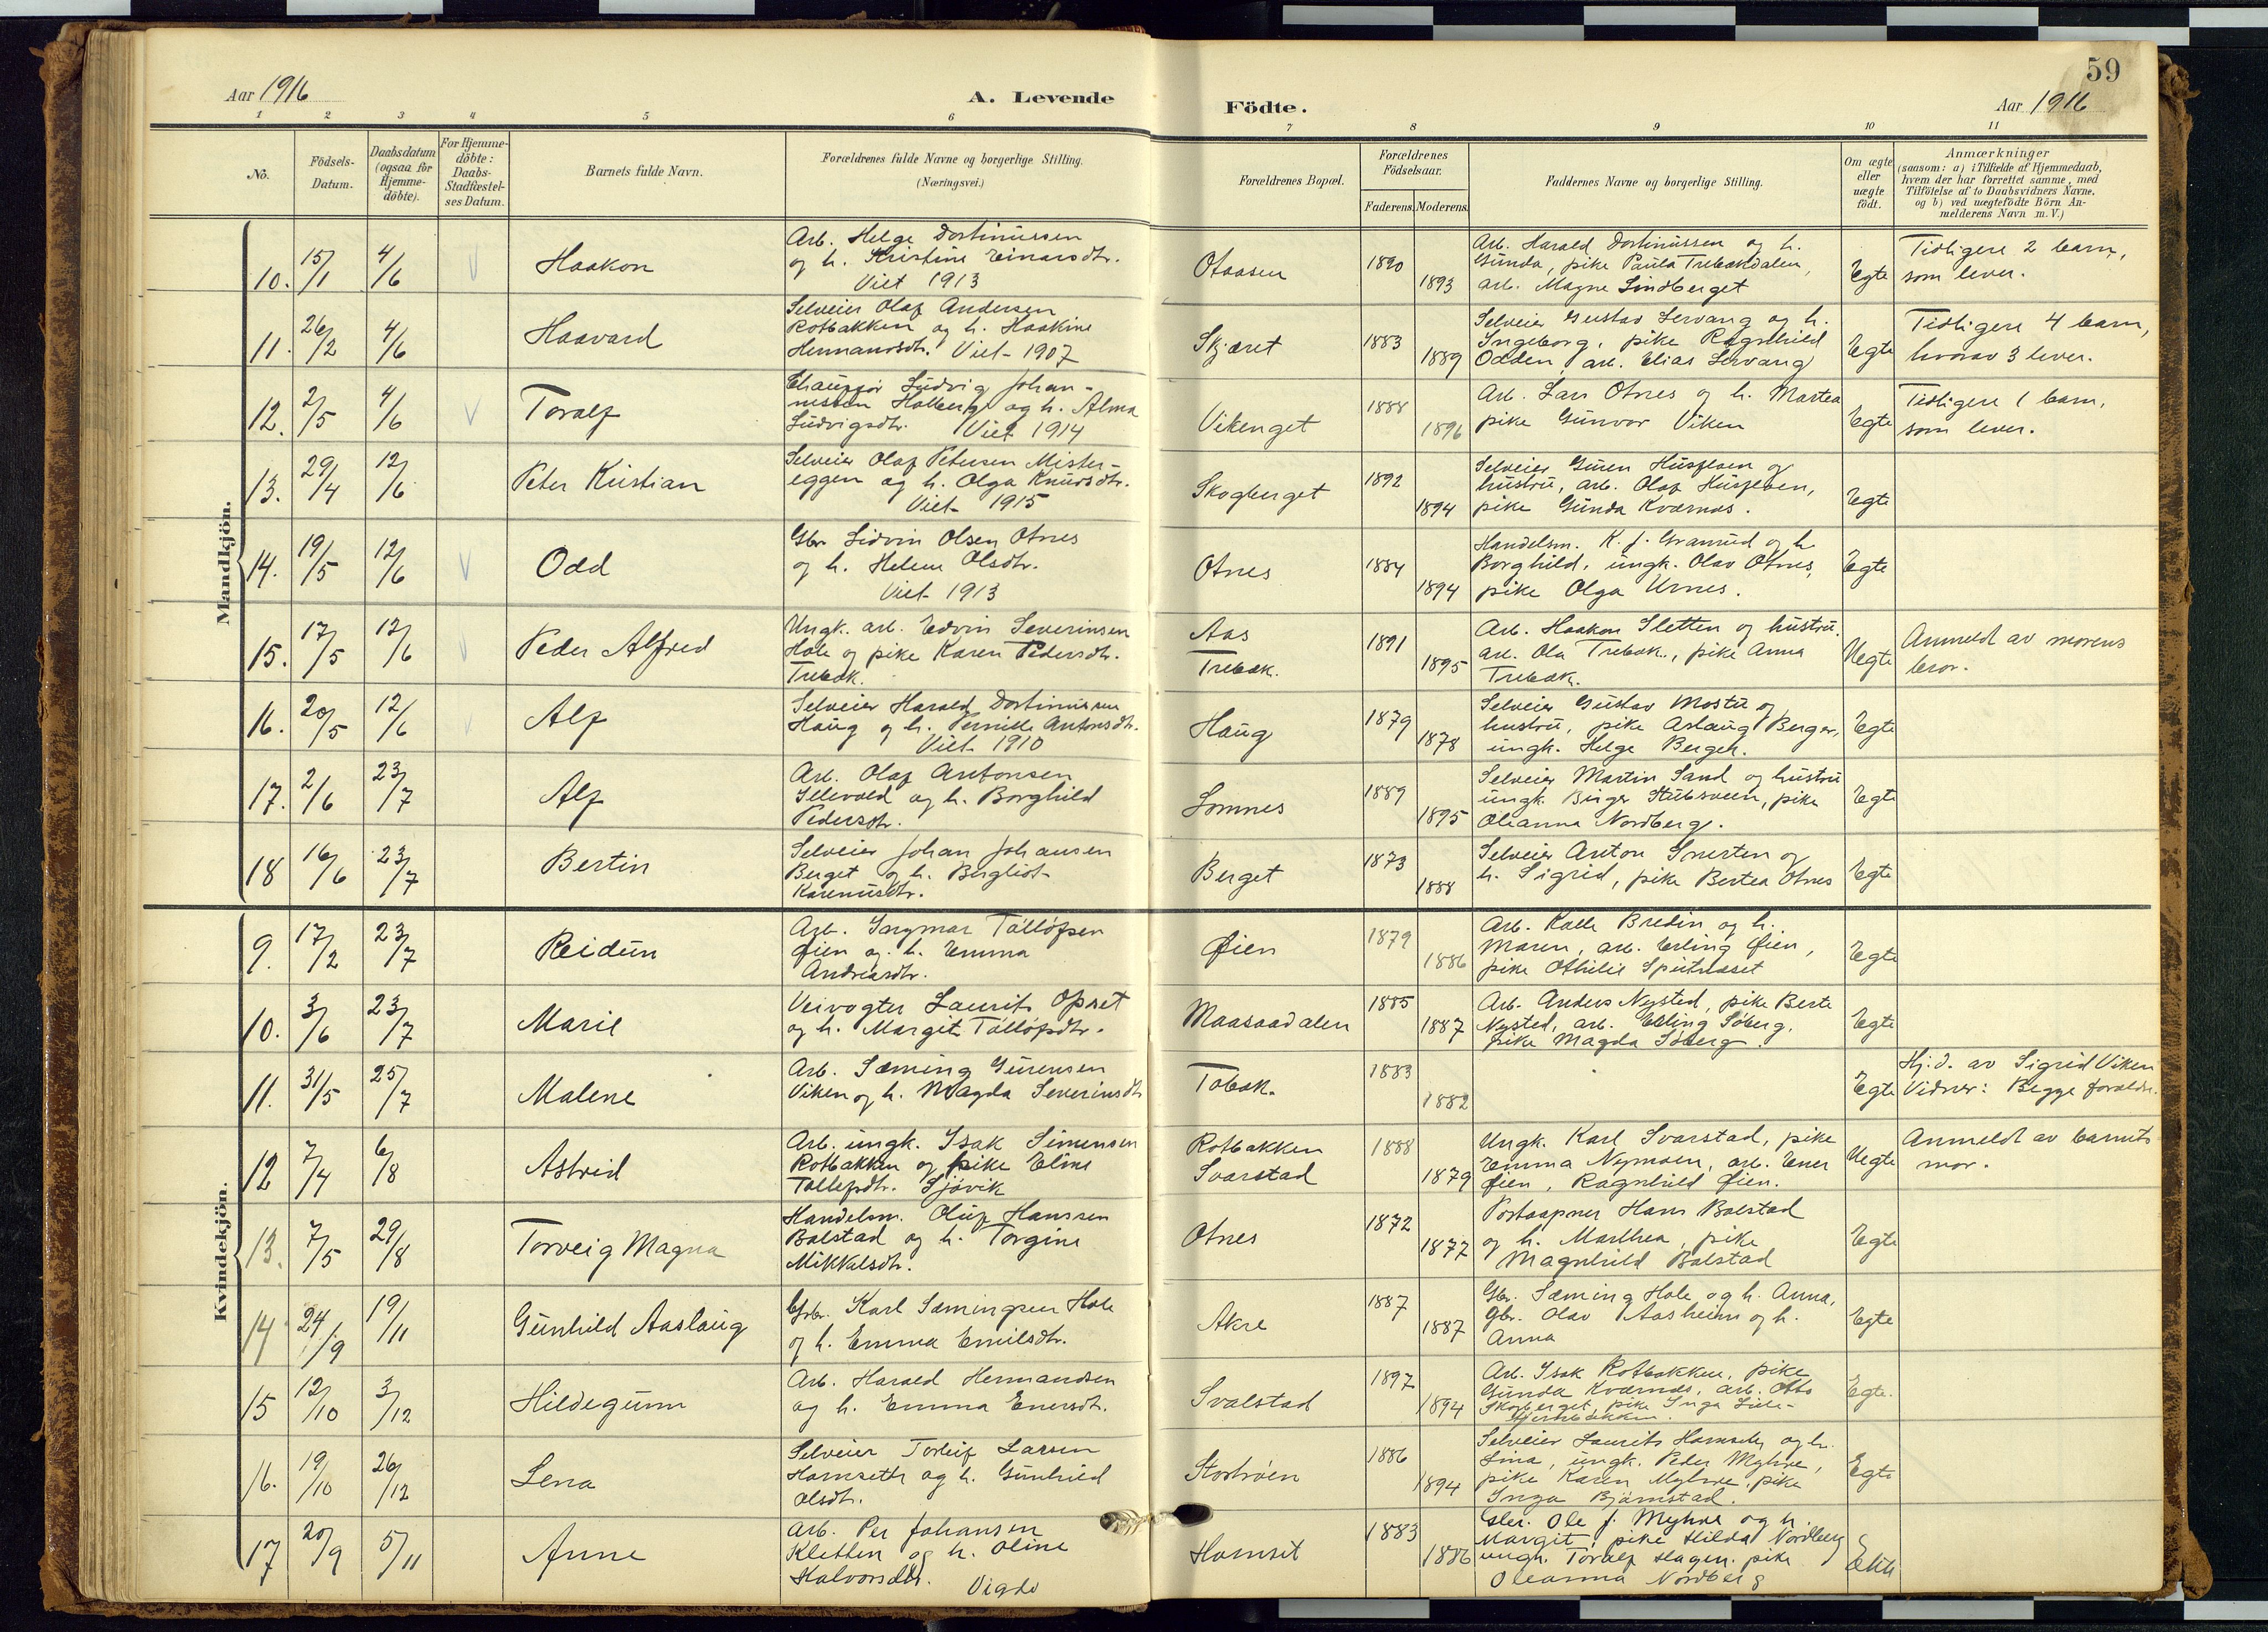 59
Aar 1916
A. Levende
Födte.
Aar 1916
1 2 3 4 5 6 7 8 9 10 11
No.
Födsels-
Datum.
Daabsdatum
(ogsaa for
Hjemme-
döbte).
For Hjemme-
döbte:
Daabs-
Stadfæstel-
ses Datum.
Barnets fulde Navn.
Forældrenes fulde Navne og borgerlige Stilling.
(Næringsvei.)
Forældrenes Bopæl.
Forældrenes
Födselsaar.
Faderens. Moderens.
Faddernes Navne og borgerlige Stilling.
Om ægte
eller
uægte
födt.
Anmærkninger
(saasom: a) i Tilfælde af Hjemmedaab,
hvem der har forrettet samme, med
Tilföielse af to Daabsvidners Navne,
og b) ved uægtefödte Börn An-
melderens Navn m.V.)
Mandkjön.
10. 15/1 4/6 Haakon
Arb. Helge Dortinussen
og h. Kristine Einarsdtr.
Viet 1913
Otaasen 1890 1893
Arb. Harald Dortinussen og h.
Gunda, pike Paula Trebækdalen,
arb. Magne Lindberget
Egte
Tidligere 2 barn,
som lever.
11. 26/2 4/6 Haavard
Selveier Olaf Andersen
Rotbakken og h. Haakine
Hermansdtr. Viet 1907
Skjæret 1883 1889
Selveier Gustav Lervang og h.
Ingeborg, pike Ragnhild
Odden, arb. Elias Lervang
Egte
Tidligere 4 barn,
hvorav 3 lever.
12. 2/5 4/6 Toralf
Chauffør Ludvig Johan-
nessen Holberg og h. Alma
Ludvigsdtr. Viet 1914
Vikenget 1888 1896
Arb. Lars Otnes og h. Martea
pike Gunvor Viken
Egte
Tidligere 1 barn,
som lever.
13. 29/4 12/6 Peter Kristian
Selveier Olaf Petersen Mister-
eggen og h. Olga Knudsdtr.
Viet 1915
Skogberget 1892 1894
Selveier Guren Husfloen og
hustru, arb. Olaf Husfloen,
pike Gunda Kværnes.
Egte
14. 19/5 12/6 Odd
Gbr. Sidvin Olsen Otnes
og h. Helene Olsdtr.
Viet 1913
Otnes 1884 1894
Handelsm. K. J. Granrud og h.
Borghild, ungk. Olav Otnes,
pike Olga Urnes.
Egte
15. 17/5 12/6 Peder Alfred
Ungk. arb. Edvin Severinsen
Hole og pike Karen Pedersdtr.
Trebæk.
Aas
Trebæk. 1891 1895
Arb. Haakon Sletten og hustru,
arb. Ola Trebæk, pike Anna
Trebæk.
Uegte
Anmeldt av morens
bror.
16. 20/5 12/6 Alf
Selveier Harald Dortinussen
Haug og h. Pernille Antonsdtr.
Viet 1910
Haug 1879 1878
Selveier Gustav Mostu og
hustru, pike Aslaug Berger,
ungk. Helge Berger.
Egte
17. 2/6 23/7 Alf
Arb. Olaf Antonsen
Illevold og h. Borghild
Pedersdtr.
Lomnes 1889 1895
Selveier Martin Sand og hustru
ungk. Birger Stubsveen, pike
Oleanna Nordberg.
Egte
18 16/6 23/7 Bertin
Selveier Johan Johansen
Berget og h. Bergliot
Karenusdtr.
Berget 1873 1888
Selveier Anton Snerten og
h. Sigrid, pike Bertea Otnes
Egte
Kvindekjön.
9. 17/2 23/7 Reidun
Arb. Ingmar Tollofsen
Øien og h. Emma
Andreasdtr.
Øien 1879 1886
Arb. Kalle Bredin og h.
Maren, arb. Erling Øien,
pike Othilie
Egte
10. 3/6 23/7 Marie
Veivogter Laurits Opset
og h. Margit Tollofsdtr.
Maasaadalen 1885 1887
Arb. Anders Nysted, pike Berte
Nysted, arb. Erling Søberg,
pike Magda Søberg.
Egte
11. 31/5 25/7 Malene
Arb. Sæming Gurensen
Viken og h. Magda Severinsdtr.
Tobæk. 1883 1882
Egte
Hj.d. av Sigrid Viken
Vidner: Begge forældre.
12 7/4 6/8 Astrid
Arb. ungk. Isak Simensen
Rotbakken og pike Eline
Tollefsdtr. Sjøvik
Rotbakken
Svarstad 1888 1879
Ungk. Karl Svarstad, pike
Emma Nymoen, arb. Ener
Øien, Ragnhild Øien.
Uegte
Anmeldt av barnets
mor.
13. 7/5 29/8 Torveig Magna
Handelsm. Oluf Hanssen
Bolstad og h. Torgine
Mikkelsdtr.
Otnes 1872 1877
Postaapner Hans Bolstad
og h. Marthea, pike
Magnhild Bolstad
Egte
14 24/9 19/11 Gunhild Aaslaug
Gbr. Karl Sæmingsen Hole
og h. Emma Emilsdtr.
Akre 1887 1887
Gbr. Sæming Hole og h. Anna,
gbr. Olav Aasheim og h.
Anna
Egte
15 12/10 3/12 Hildegunn
Arb. Harald Hermandsen
og h. Emma Enersdtr.
Svalstad 1897 1894
Arb. Isak Rotbakken, pike
Gunda Kværnes, arb. Otto
Skogberget, pike Inga
Egte.
16. 19/10 26/12 Lena
Selveier Torleif Larsen
Hornseth og h. Gunhild
Olsdtr.
Storbrøen 1886 1894
Selveier Laurits Hornseth og h.
Lina, ungk. Peder Myhre,
pike Karen Myhre, pike
Inga Bjørnstad.
Egte
17 20/9 5/11 Anne
Arb. Per Johansen
Kletten og h. Oline
Halvorsdtr. Vigde
Hornset 1883 1886
Gbr. Ole J. Myhre og h.
Margit, pike Hilda Nordberg
ungk. Toralf Hagen, pike
Oleanna Nordberg
Ekte